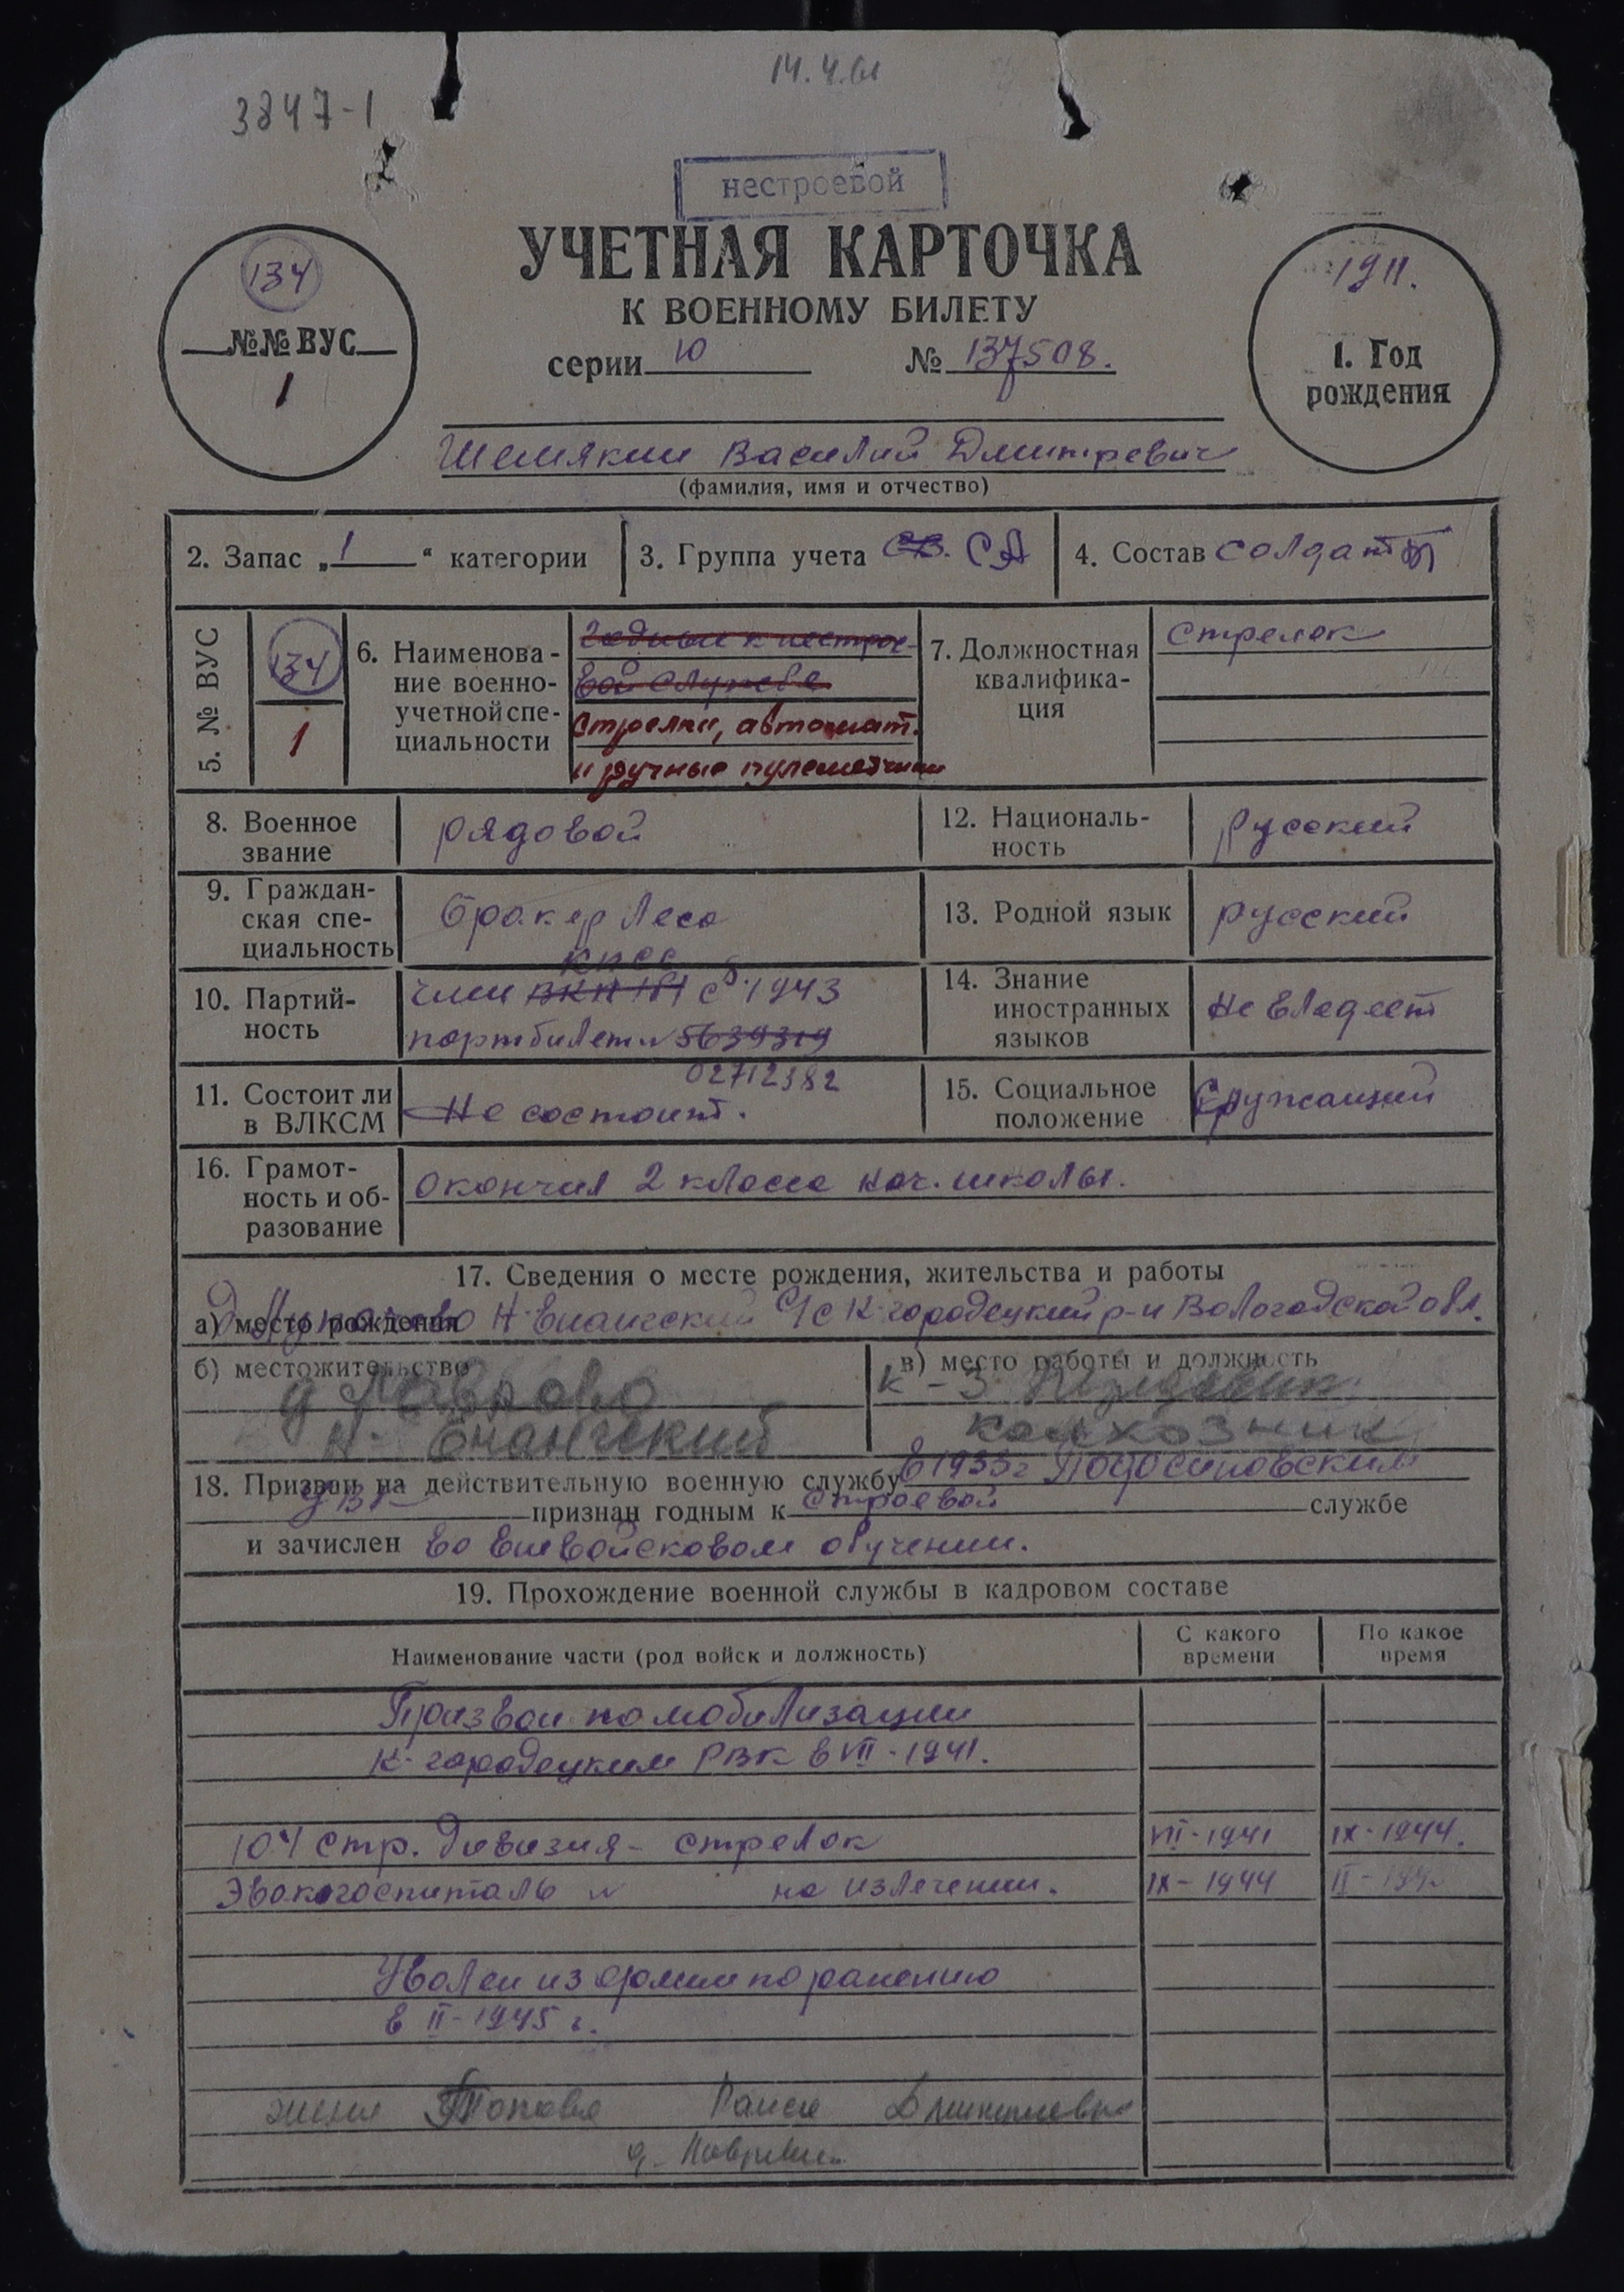 14.4.61
3847-1
нестроевой
УЧЕТНАЯ КАРТОЧКА
К ВОЕННОМУ БИЛЕТУ
серии Ю № 137508.
134
№№ ВУС
1
1911.
1. Год
рождения
Шемякин Василий Дмитревич
(фамилия, имя и отчество)
2. Запас „1“ категории
3. Группа учета СВ. СА
4. Состав солдаты
5. № ВУС
134
1
6. Наименова-
ние военно-
учетной спе-
циальности
годный к нестрое-
вой службе
стрелки, автомат.
и ручные пулеметчики
7. Должностная
квалифика-
ция
стрелок
8. Военное
звание
рядовой
12. Националь-
ность
русский
9. Граждан-
ская спе-
циальность
бракер леса
13. Родной язык
русский
10. Партий-
ность
КПСС
член ВКП(б) с 1943
партбилет № 5639319
02712382
14. Знание
иностранных
языков
не владеет
11. Состоит ли
в ВЛКСМ
Не состоит.
15. Социальное
положение
Служащий
16. Грамот-
ность и об-
разование
окончил 2 класса нач. школы.
17. Сведения о месте рождения, жительства и работы
а) место рождения д. Н-Енангский с/с К-городецкий р-н Вологодской обл.
б) местожительство
д Лаврово
Н-Енангский
в) место работы и должность
к-з
колхозник
18. Призван на действительную военную службу в 1933г Подосиновским
РВК признан годным к строевой службе
и зачислен во вневойсковом обучении.
19. Прохождение военной службы в кадровом составе
Наименование части (род войск и должность)
С какого
времени
По какое
время
Призван по мобилизации
К-городецким РВК в VII-1941.
104 стр. дивизия - стрелок VII-1941 IX-1944.
Эвакогоспиталь № на излечении. IX-1944 II-194
Уволен из армии по ранению
в II-1945 г.
жена Попова Раиса Дмитриевна
д.